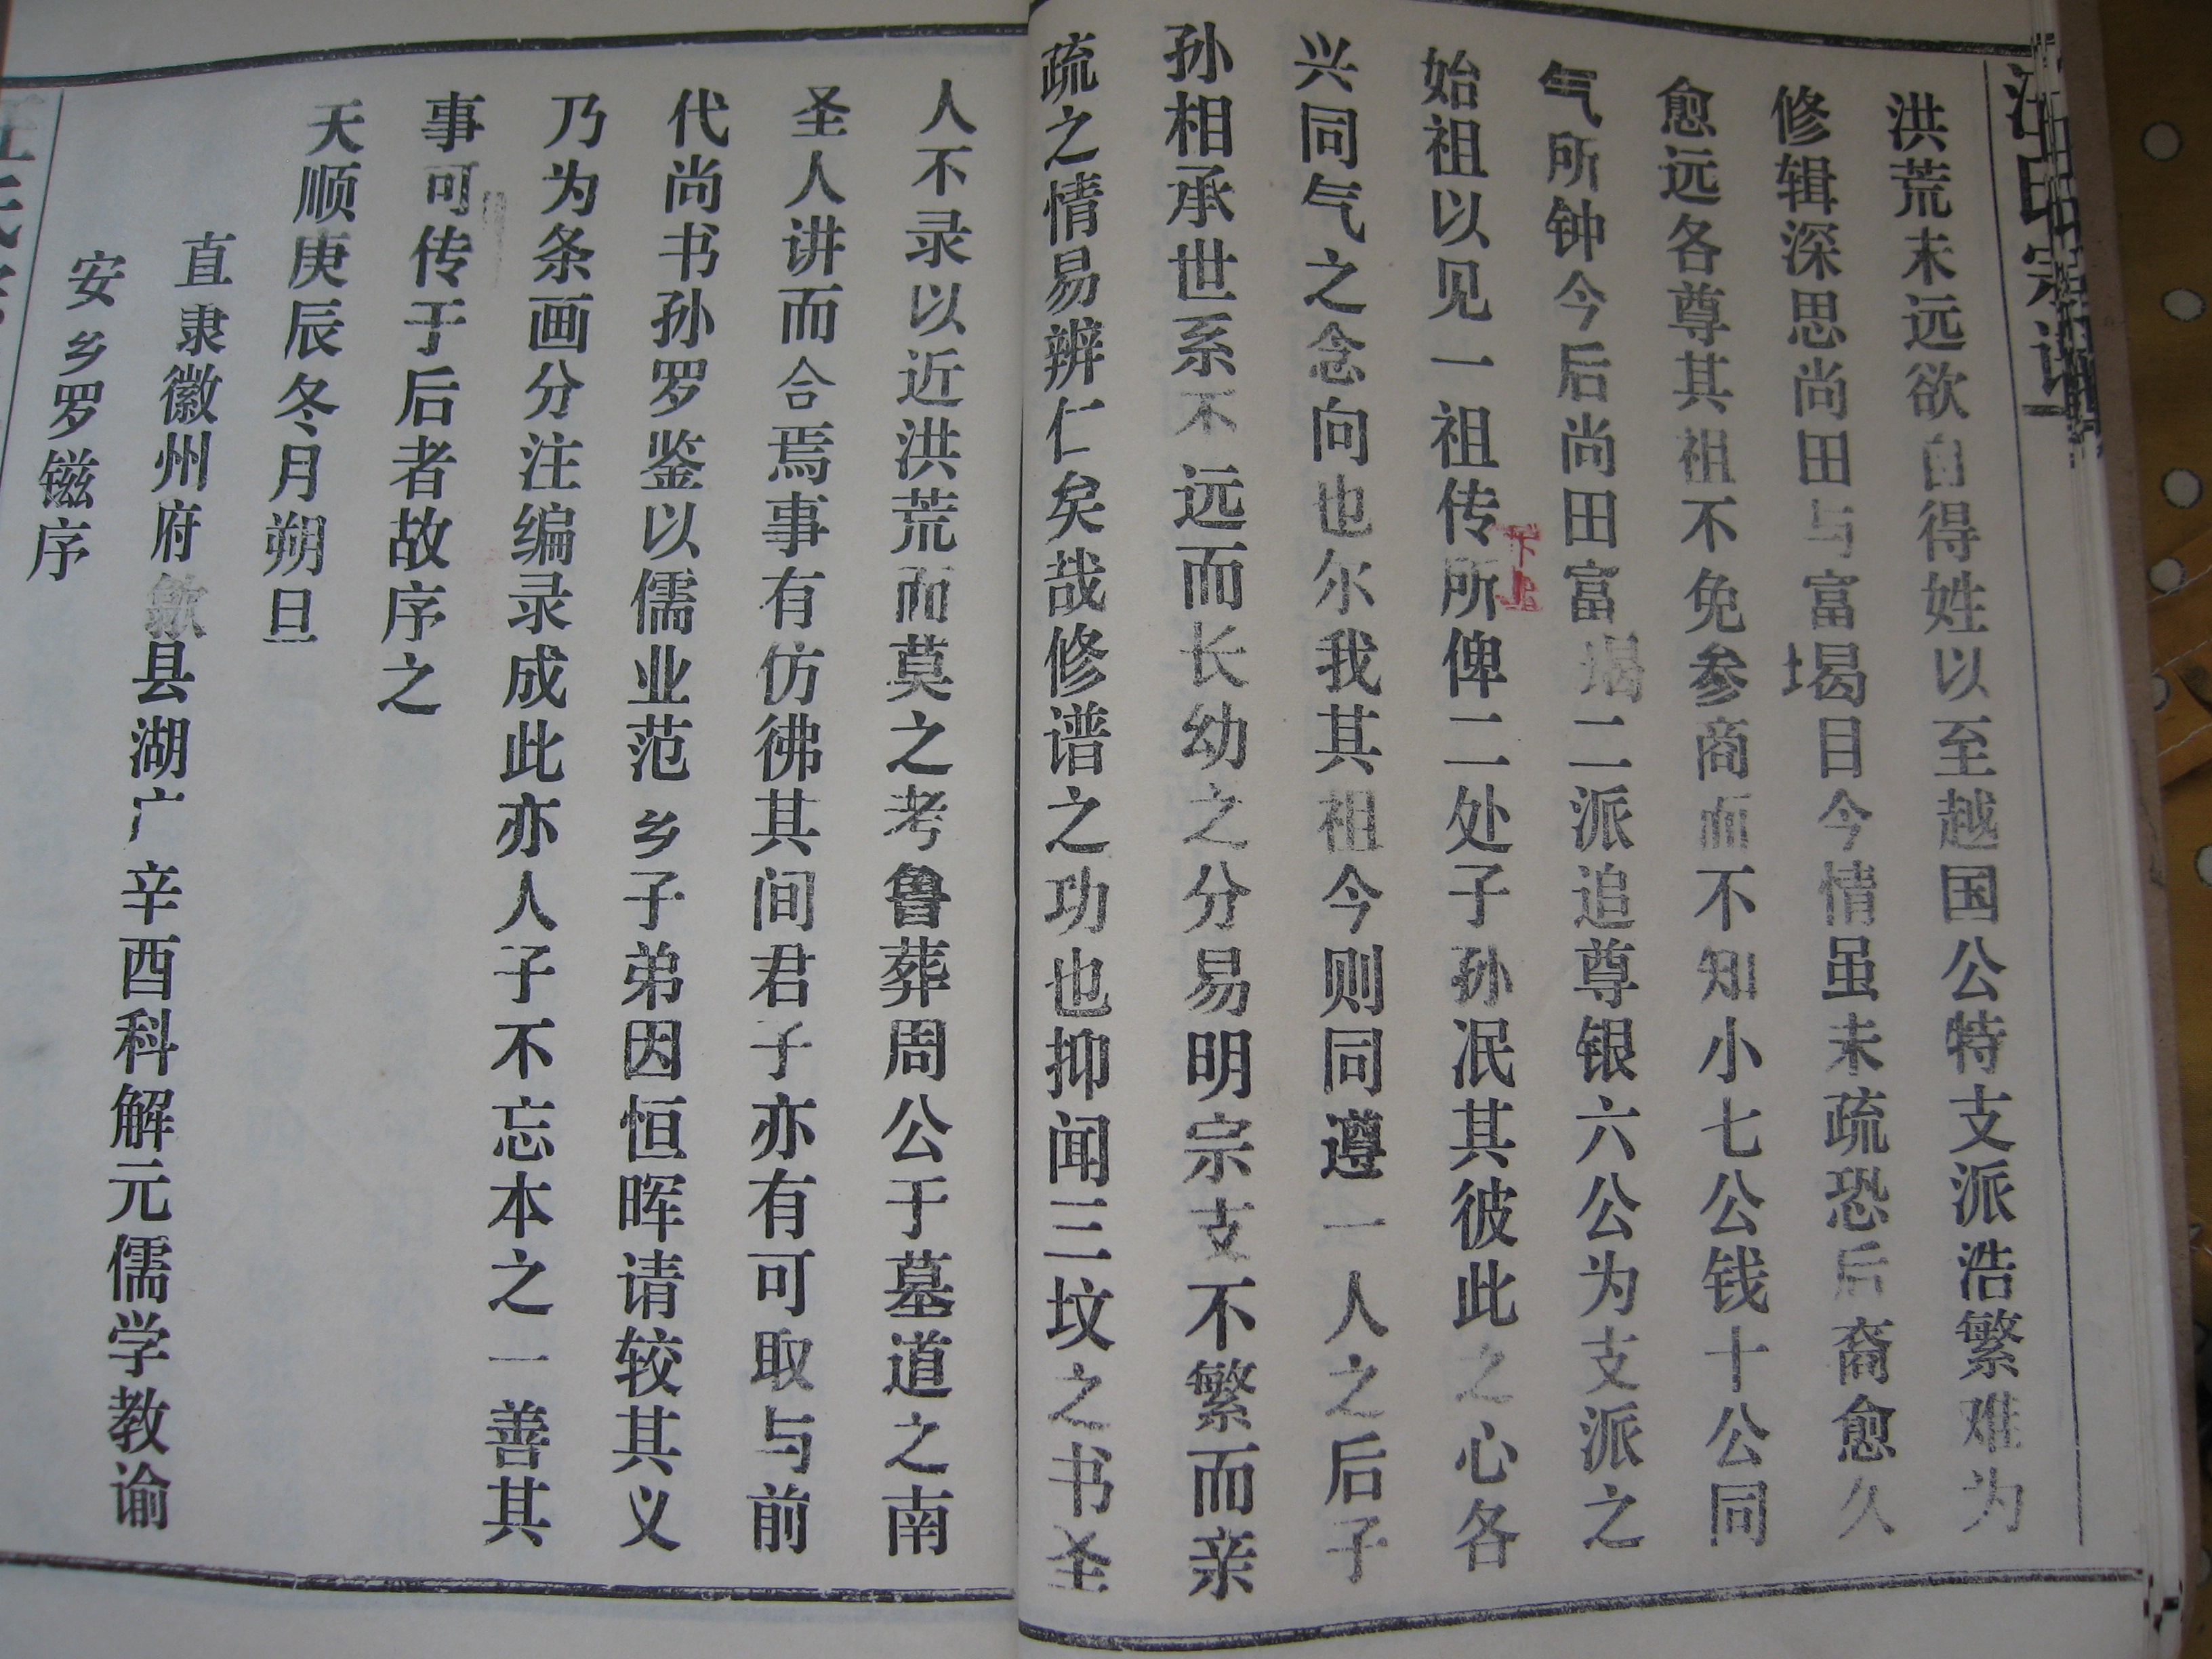 汪氏宗谱
洪荒未远欲自得姓以至越国公特支派浩繁难为
修辑深思尚田与富堨目今情虽未疏恐后裔愈久
愈远各尊其祖不免参商而不知小七公钱十公同
气所钟今后尚田富堨二派追尊银六公为支派之
始祖以见一祖传所俾二处子孙泯其彼此之心各
下上
兴同气之念向也尔我其祖今则同遵一人之后子
孙相承世系不远而长幼之分易明宗支不繁而亲
疏之情易辨仁矣哉修谱之功也抑闻三坟之书圣
人不录以近洪荒而莫之考鲁葬周公于墓道之南
圣人讲而合焉事有仿彿其间君子亦有可取与前
代尚书孙罗鉴以儒业范乡子弟因恒晖请较其义
乃为条画分注编录成此亦人子不忘本之一善其
事可传于后者故序之
天顺庚辰冬月朔旦
直隶徽州府歙县湖广辛酉科解元儒学教谕
安乡罗镃序